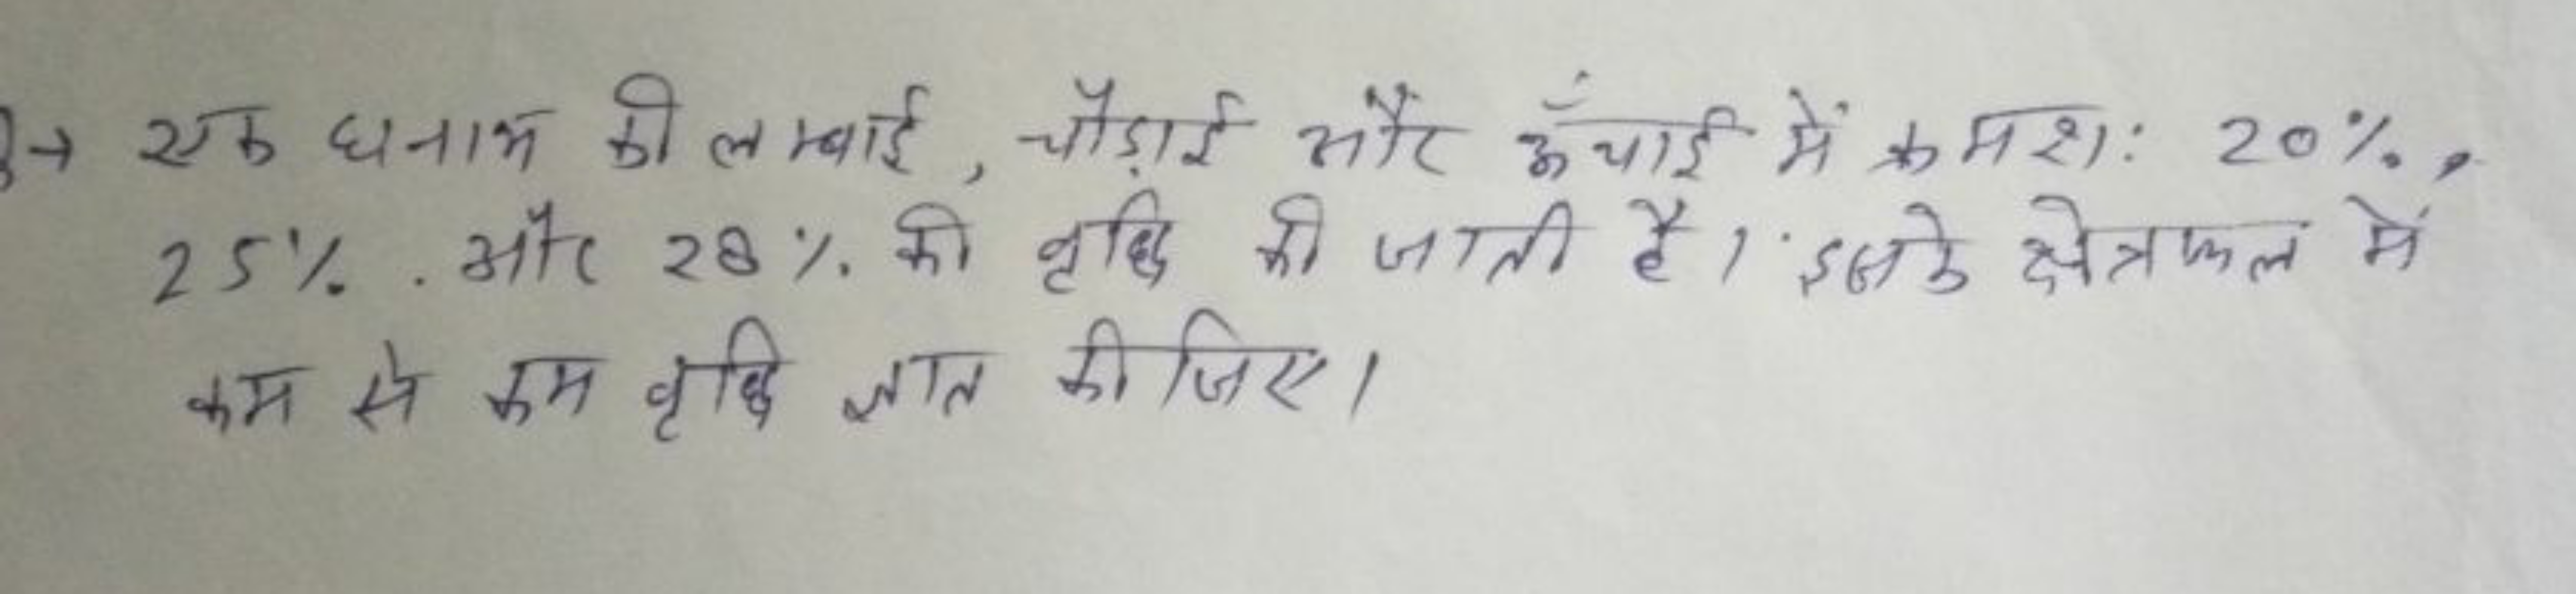 → एक घनाभ की लम्बाई, चौड़ाई और ऊँचाई में क्रमश: 20%,
25%. और 28%. की वृद्धि की जाती है। इसके क्षेत्रफल में
कम से कम वृद्धि ज्ञात कीजिए।